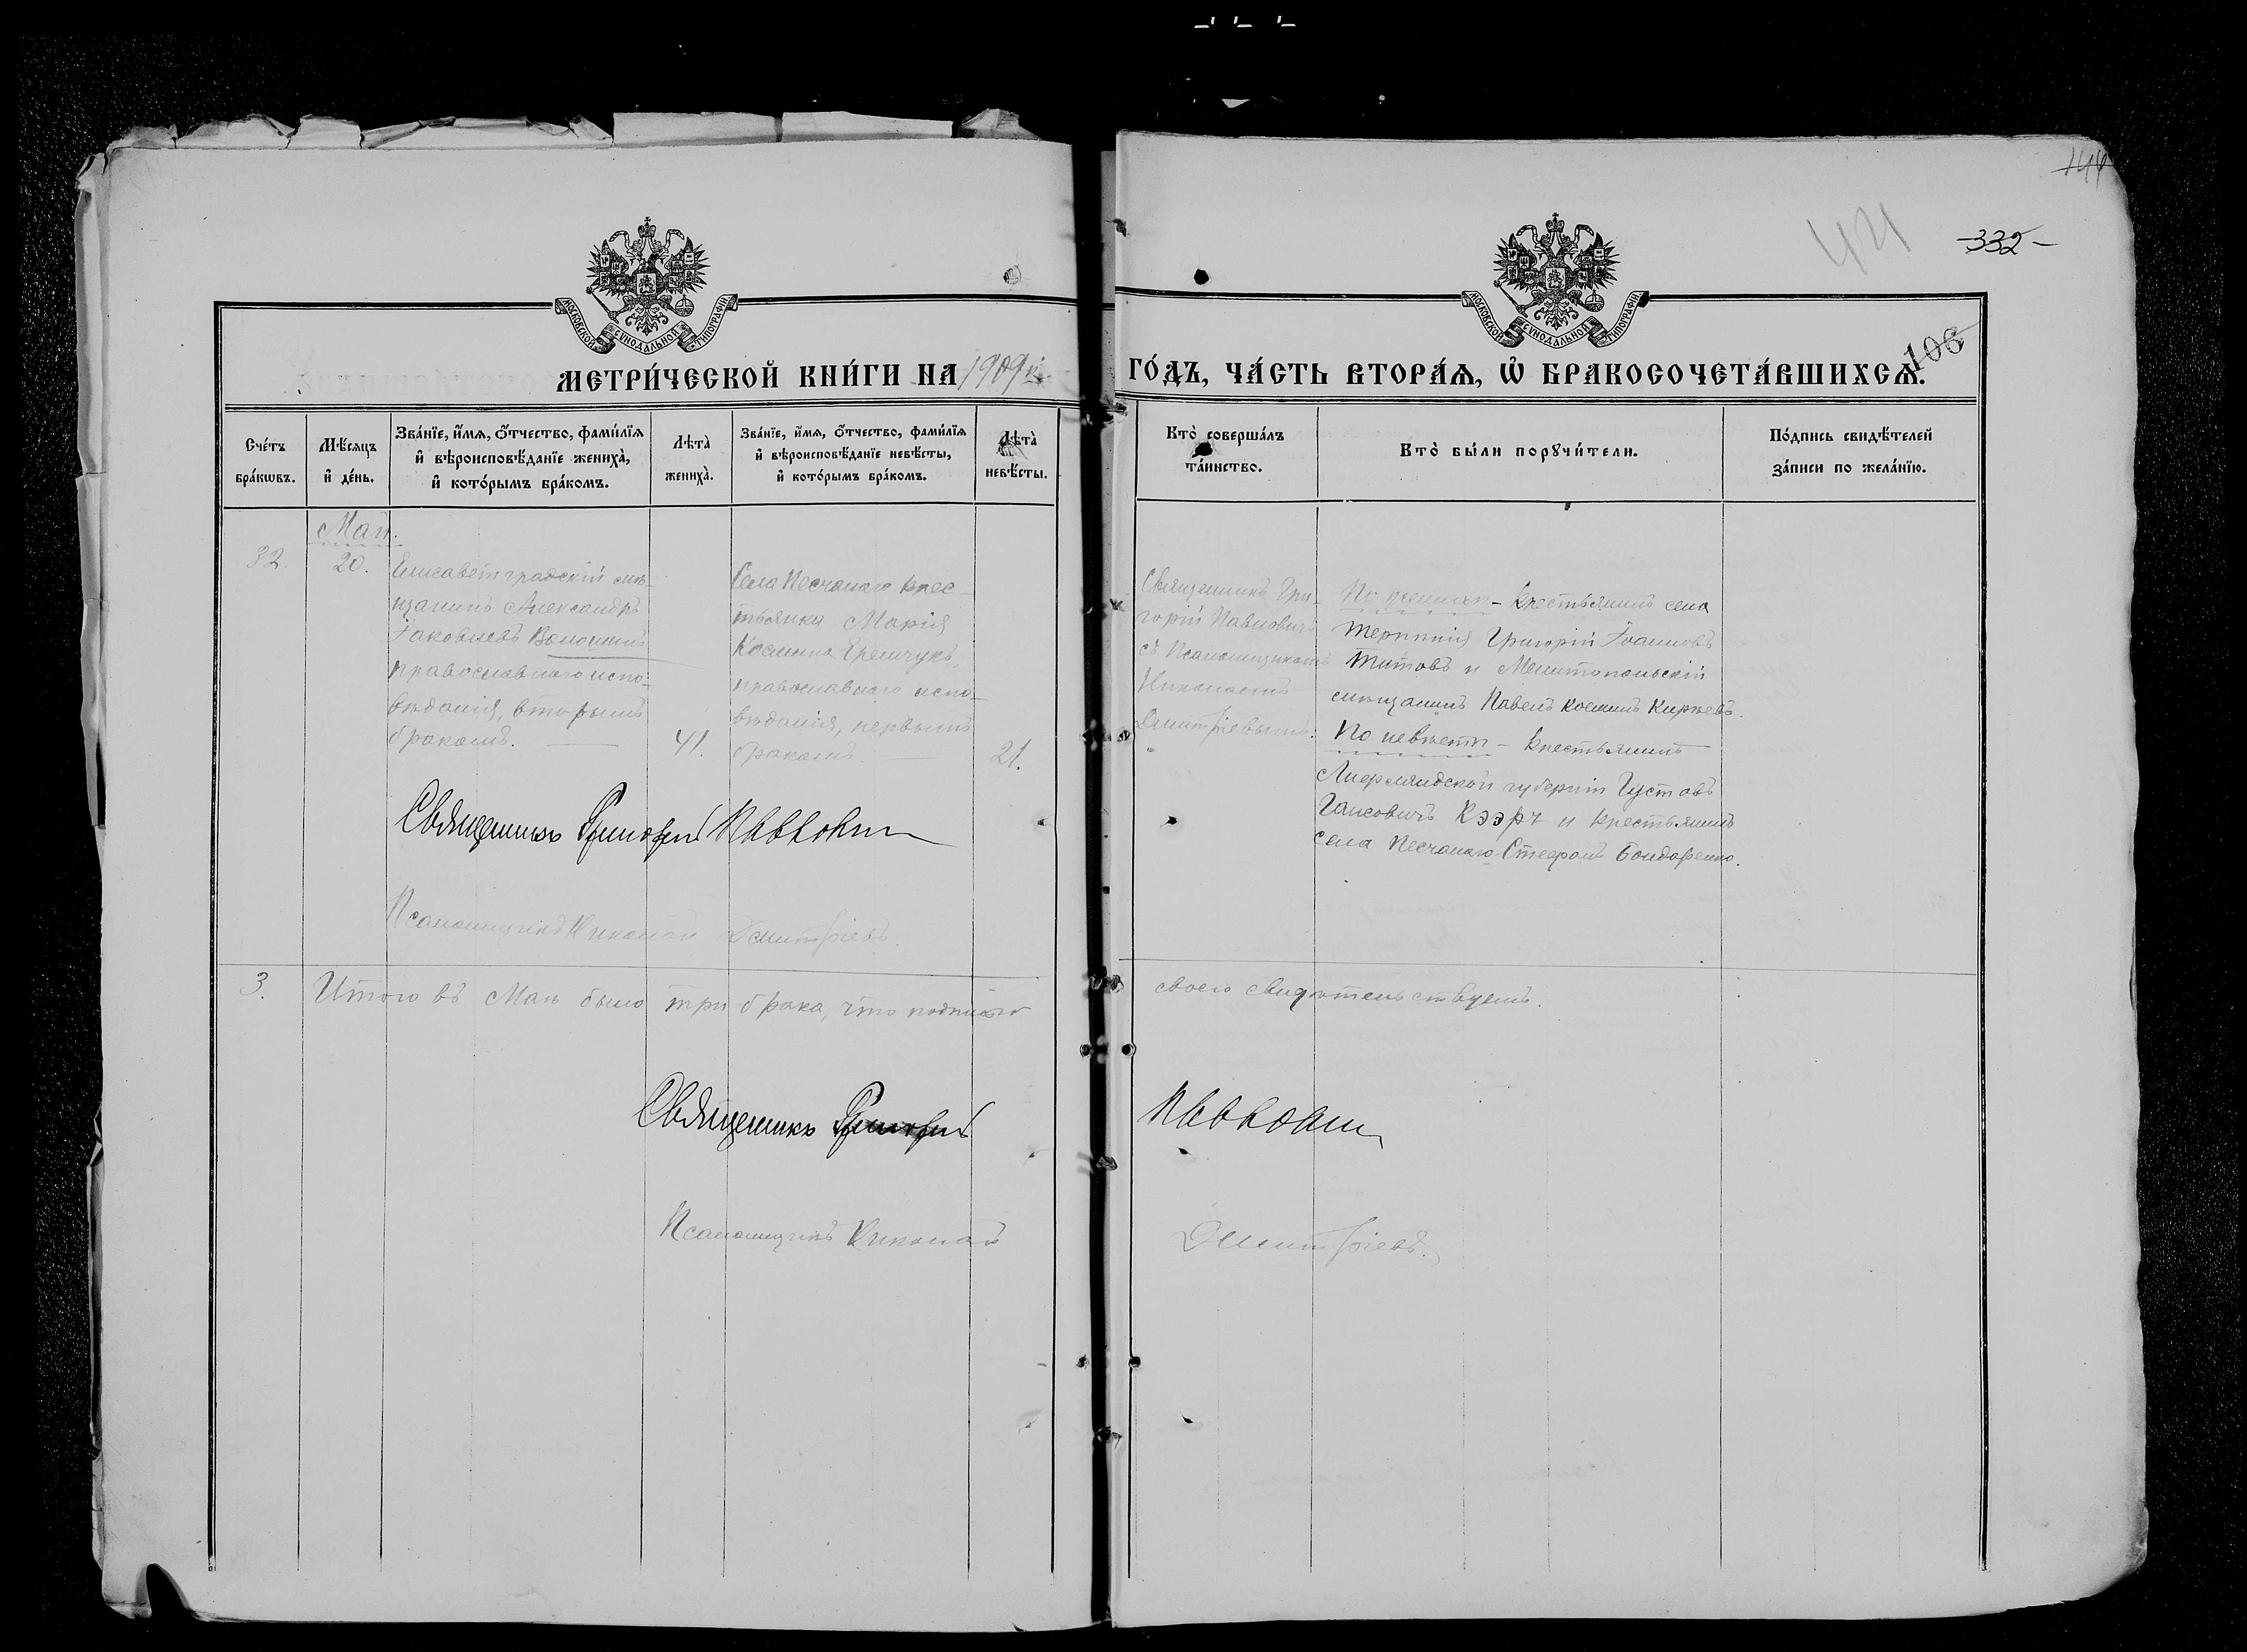 144
441
-332-
106
МОСКОВСКОЙ СѴНОДАЛЬНОЙ ТИПОГРАФІИ
МОСКОВСКОЙ СѴНОДАЛЬНОЙ ТИПОГРАФІИ
МЕТРИ́ЧЕСКОЙ КНИ́ГИ НА 1909
ГО́ДЪ, ЧА́СТЬ ВТОРА́Ѧ, Ѡ҆ БРАКОСОЧЕТА́ВШИХСѦ.
Сче́тъ бра́кѡвъ.
Мѣ́сѧцъ и҆ де́нь.
Зва́нїе, и҆́мѧ, ѻ҆́тчество, фами́лїѧ и҆ вѣроисповѣ́данїе жениха̀, и҆ кото́рымъ бра́комъ.
Лѣта̀ жениха̀.
Зва́нїе, и҆́мѧ, ѻ҆́тчество, фами́лїѧ и҆ вѣроисповѣ́данїе невѣ́сты, и҆ кото́рымъ бра́комъ.
Лѣта̀ невѣ́сты.
Кто̀ соверша́лъ та́инство.
Кто̀ бы́ли порꙋчи́тели.
По́дпись свидѣ́телей за́писи по жела́нїю.
Май.
32.
20.
Елисаветградскій мѣ-
щанинъ Александръ
Іаковлевъ Волошинъ
православнаго испо-
вѣданія, вторымъ
бракомъ.
41.
Села Песчанаго крес-
тьянка Марія
Космина Гремчукъ,
православнаго испо-
вѣданія, первымъ
бракомъ.
21.
Священникъ Гри-
горій Павловичъ
съ Псаломщикомъ
Николаемъ
Димитріевымъ.
По женихѣ - крестьянинъ села
Терпѣнія Григорій Іоанновъ
Титовъ и Мелитопольскій
мѣщанинъ Павелъ Космин Киржевъ.
По невѣстѣ - крестьянинъ
Лифляндской губерніи Густавъ
Гансовичъ Кээрь и крестьянинъ
села Песчанаго Стефанъ Бондаренко.
Священникъ Григорій Павлович
Псаломщикъ Николай Димитріевъ.
3.
Итого въ Маѣ было три брака, что подписью
своею свидѣтельствуемъ.
Священникъ Григорій
Павлович
Псаломщикъ Николай
Димитріевъ.